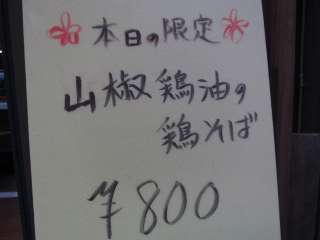 本日の限定
山椒鶏油の
鶏そば
¥800